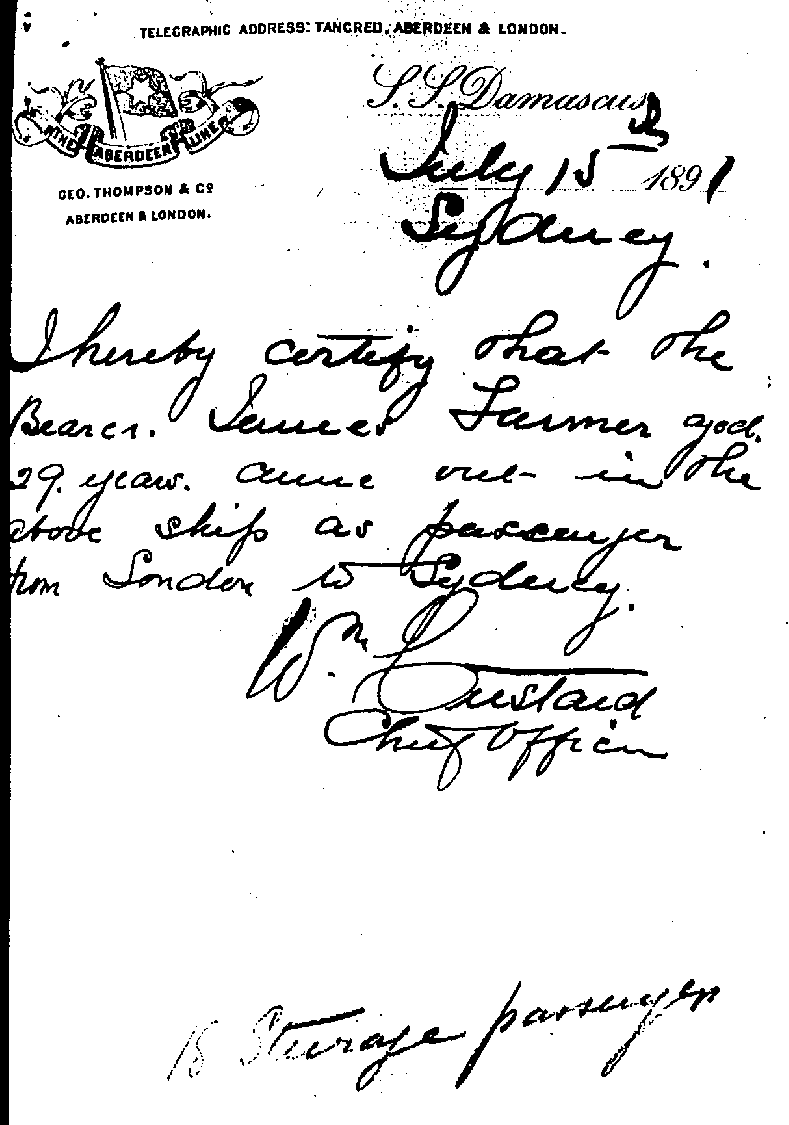 TELEGRAPHIC ADDRESS: TANCRED, ABERDEEN & LONDON.
THE ABERDEEN LINE
GEO. THOMPSON & Co
ABERDEEN & LONDON.
S.S. Damascus
July 15th 1891
Sydney.
I hereby certify that the
Bearer. James Farmer aged.
29. years. came out in the
above ship as passenger
from London to Sydney.
Wm
Chief Officer
Steerage passenger